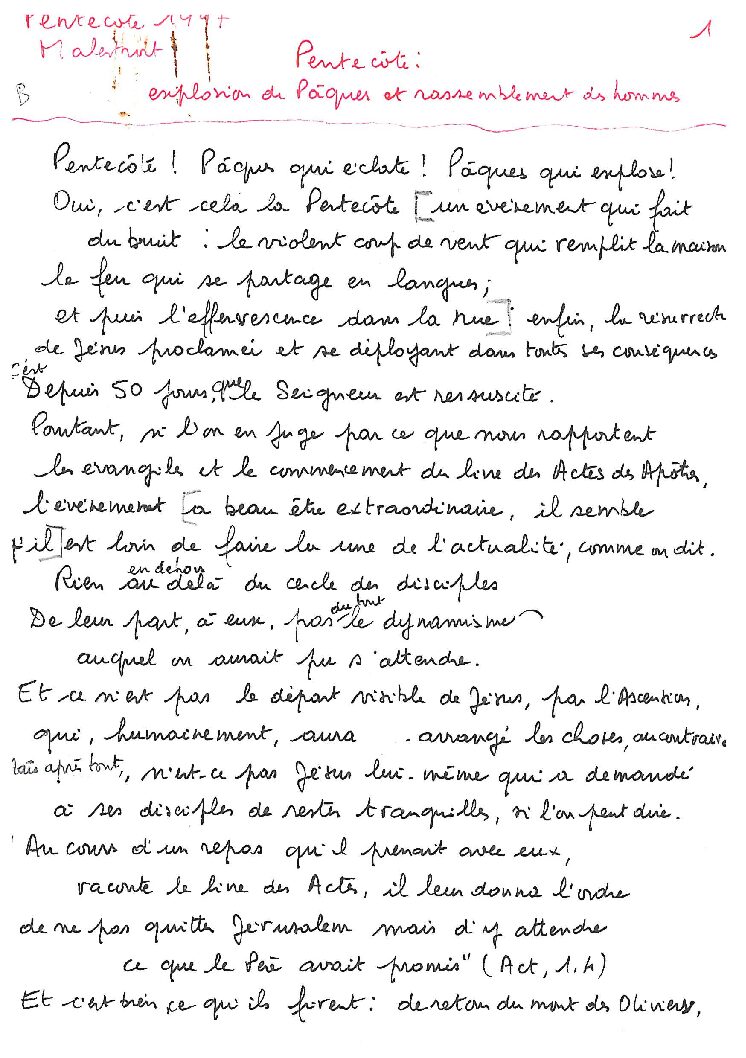 Pentecôte 1997
Malestroit
1
Pentecôte :
B
explosion de Pâques et rassemblement des hommes
Pentecôte ! Pâques qui éclate ! Pâques qui explose !
Oui, c'est cela la Pentecôte [un événement qui fait
du bruit : le violent coup de vent qui remplit la maison
le feu qui se partage en langues ;
et puis l'effervescence dans la rue] enfin, la résurrect
de Jésus proclamée et se déployant dans toutes ses conséquences
C'est
Depuis 50 jours, que le Seigneur est ressuscité.
Pourtant, si l'on en juge par ce que nous rapportent
les évangiles et le commencement du livre des Actes des Apôtres,
l'événement [a beau être extraordinaire, il semble
qu'il] est loin de faire la une de l'actualité, comme on dit.
en dehors
Rien au delà du cercle des disciples
du tout
De leur part, à eux, pas le dynamisme
auquel on aurait pu s'attendre.
Et ce n'est pas le départ visible de Jésus, par l'Ascension,
qui, humainement, aura arrangé les choses, au contraire
Mais après tout, n'est-ce pas Jésus lui-même qui a demandé
à ses disciples de rester tranquilles, si l'on peut dire.
"Au cours d'un repas qu'il prenait avec eux,
raconte le livre des Actes, il leur donna l'ordre
de ne pas quitter Jérusalem mais d'y attendre
ce que le Père avait promis" (Act, 1.4)
Et c'est bien ce qu'ils firent : de retour du mont des Oliviers,